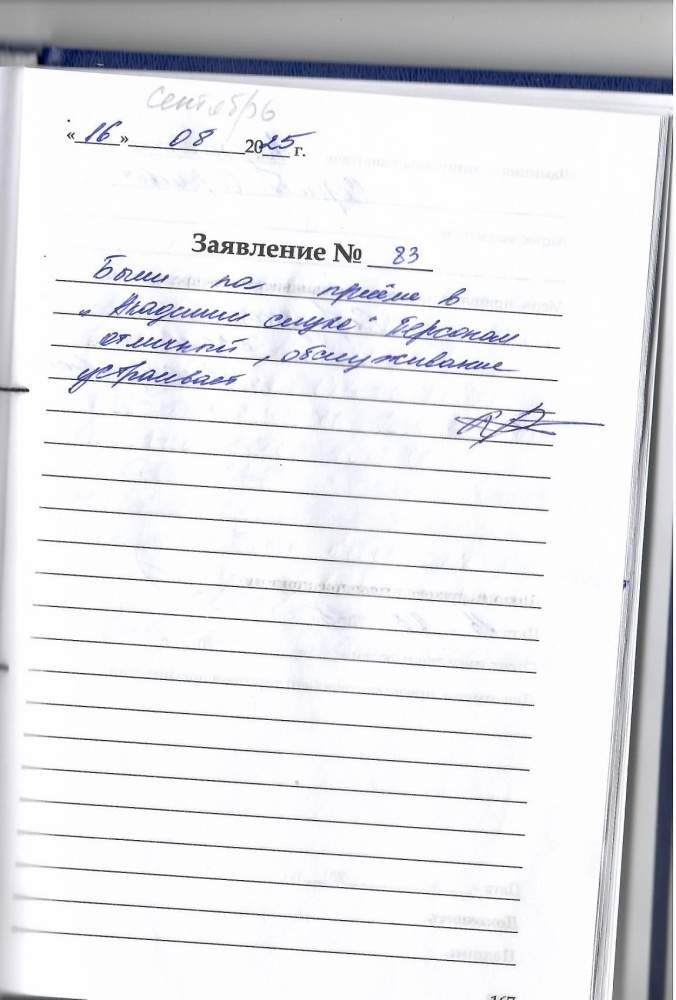 сентябрь
«16» 08 2025 г.
Заявление № 83
Были на приёме в
"Академии слуха" Персонал
отличный, обслуживание
устраивает
167